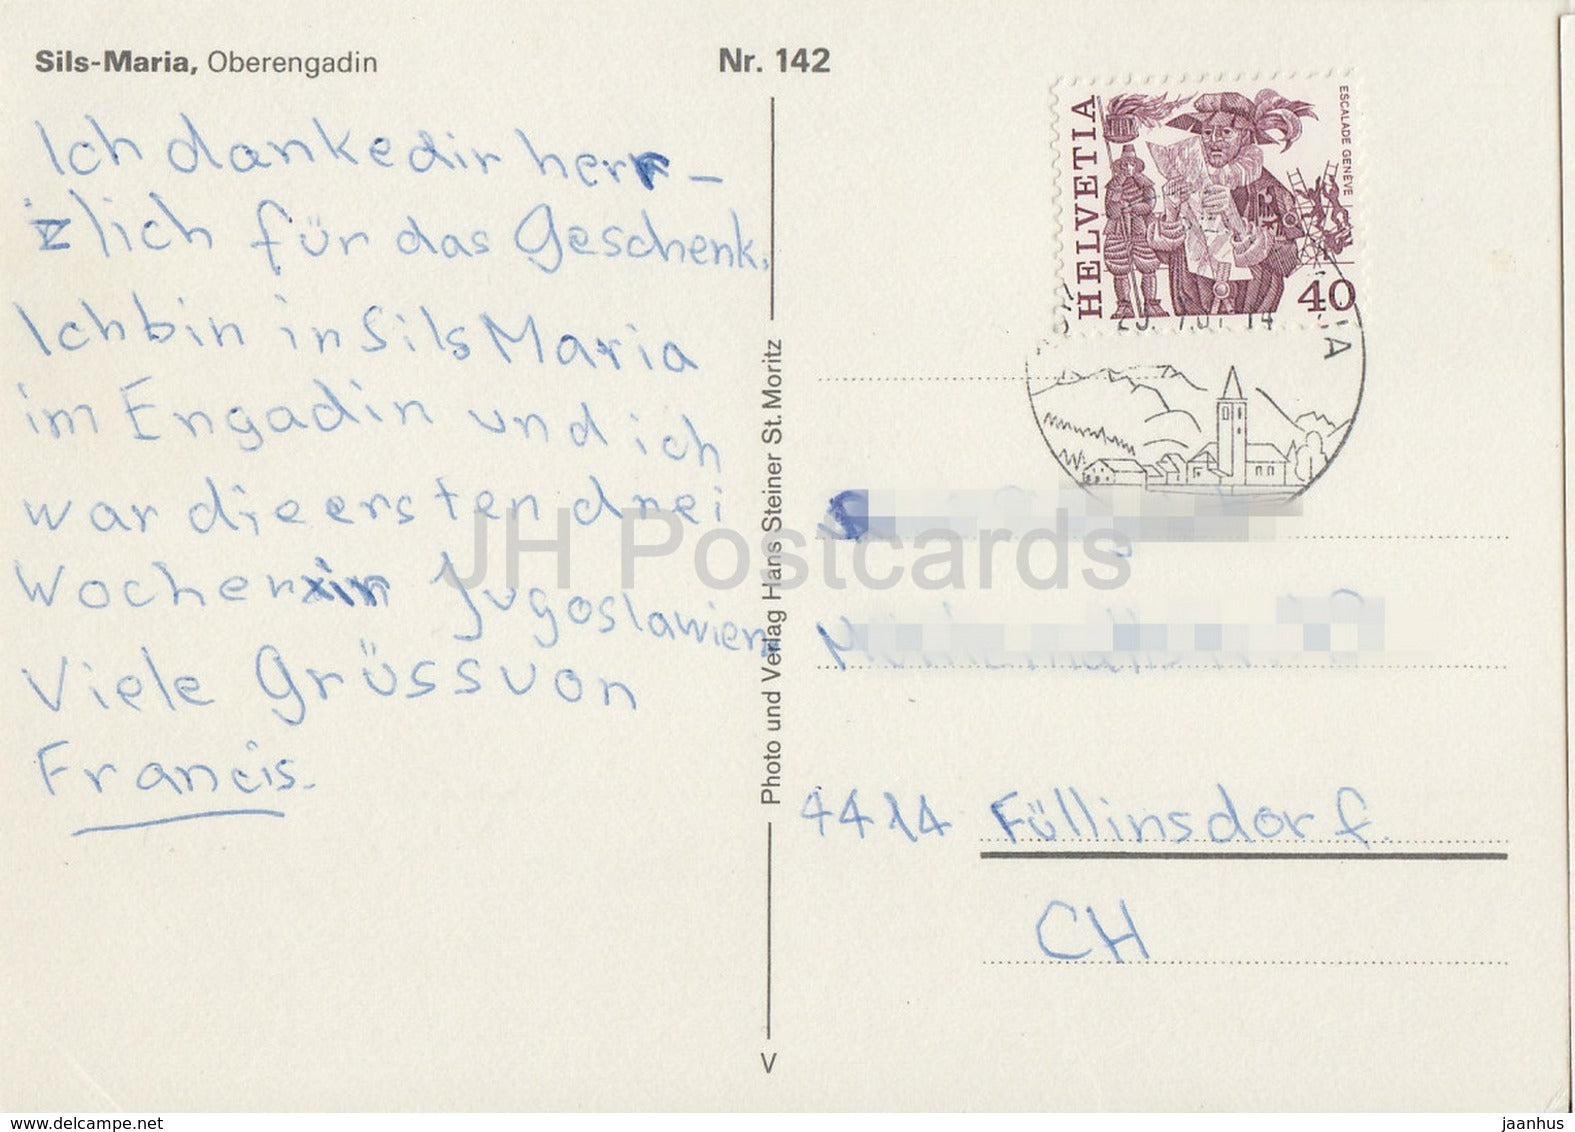 Sils-Maria, Oberengadin
Nr. 142
Ich danke dir herr-
zlich für das Geschenk.
Ich bin in Sils Maria
im Engadin und ich
war die ersten drei
Wochen in Jugoslawien
Viele Grüss von
Francis.
Photo und Verlag Hans Steiner St. Moritz
V
HELVETIA
ESCALADE GENÈVE
40
4414 Füllinsdorf
CH
JH Postcards
www.delcampe.net
jaanhus